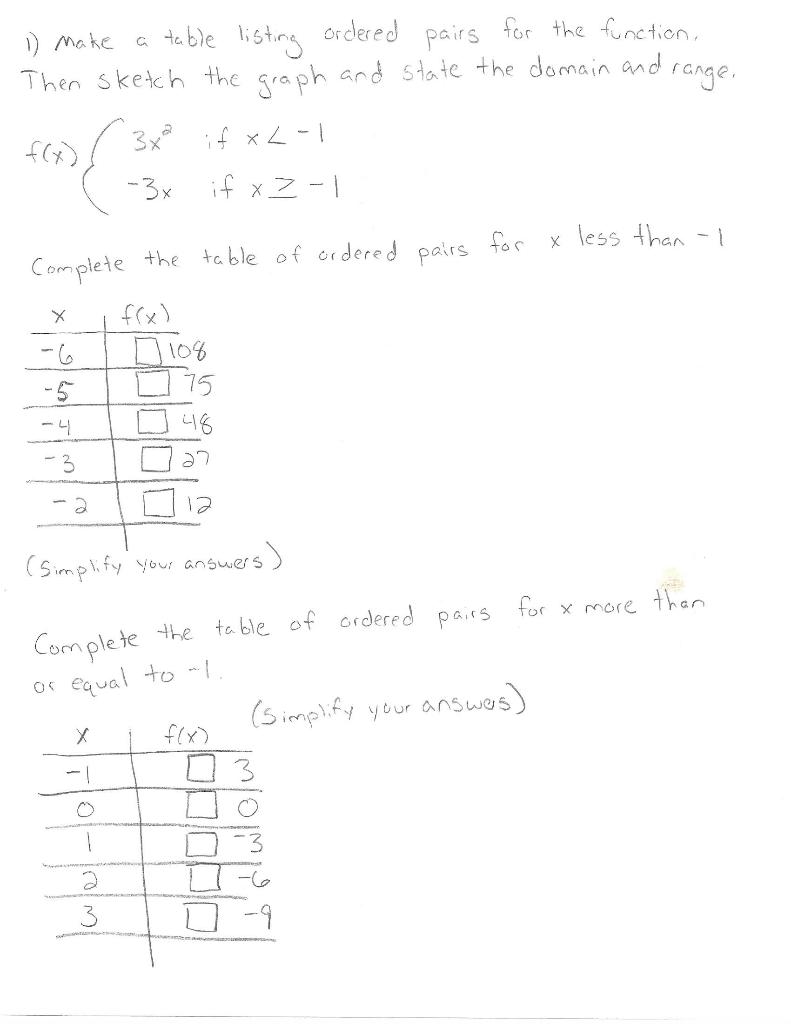 1) Make a table listing ordered pairs for the function.
Then sketch the graph and state the domain and range.
f(x) { 3x² if x < -1
-3x if x ≥ -1
Complete the table of ordered pairs for x less than -1
x f(x)
-6 □ 108
-5 □ 75
-4 □ 48
-3 □ 27
-2 □ 12
(Simplify your answers)
Complete the table of ordered pairs for x more than
or equal to -1.
(Simplify your answes)
x f(x)
-1 □ 3
0 □ 0
1 □ -3
2 □ -6
3 □ -9